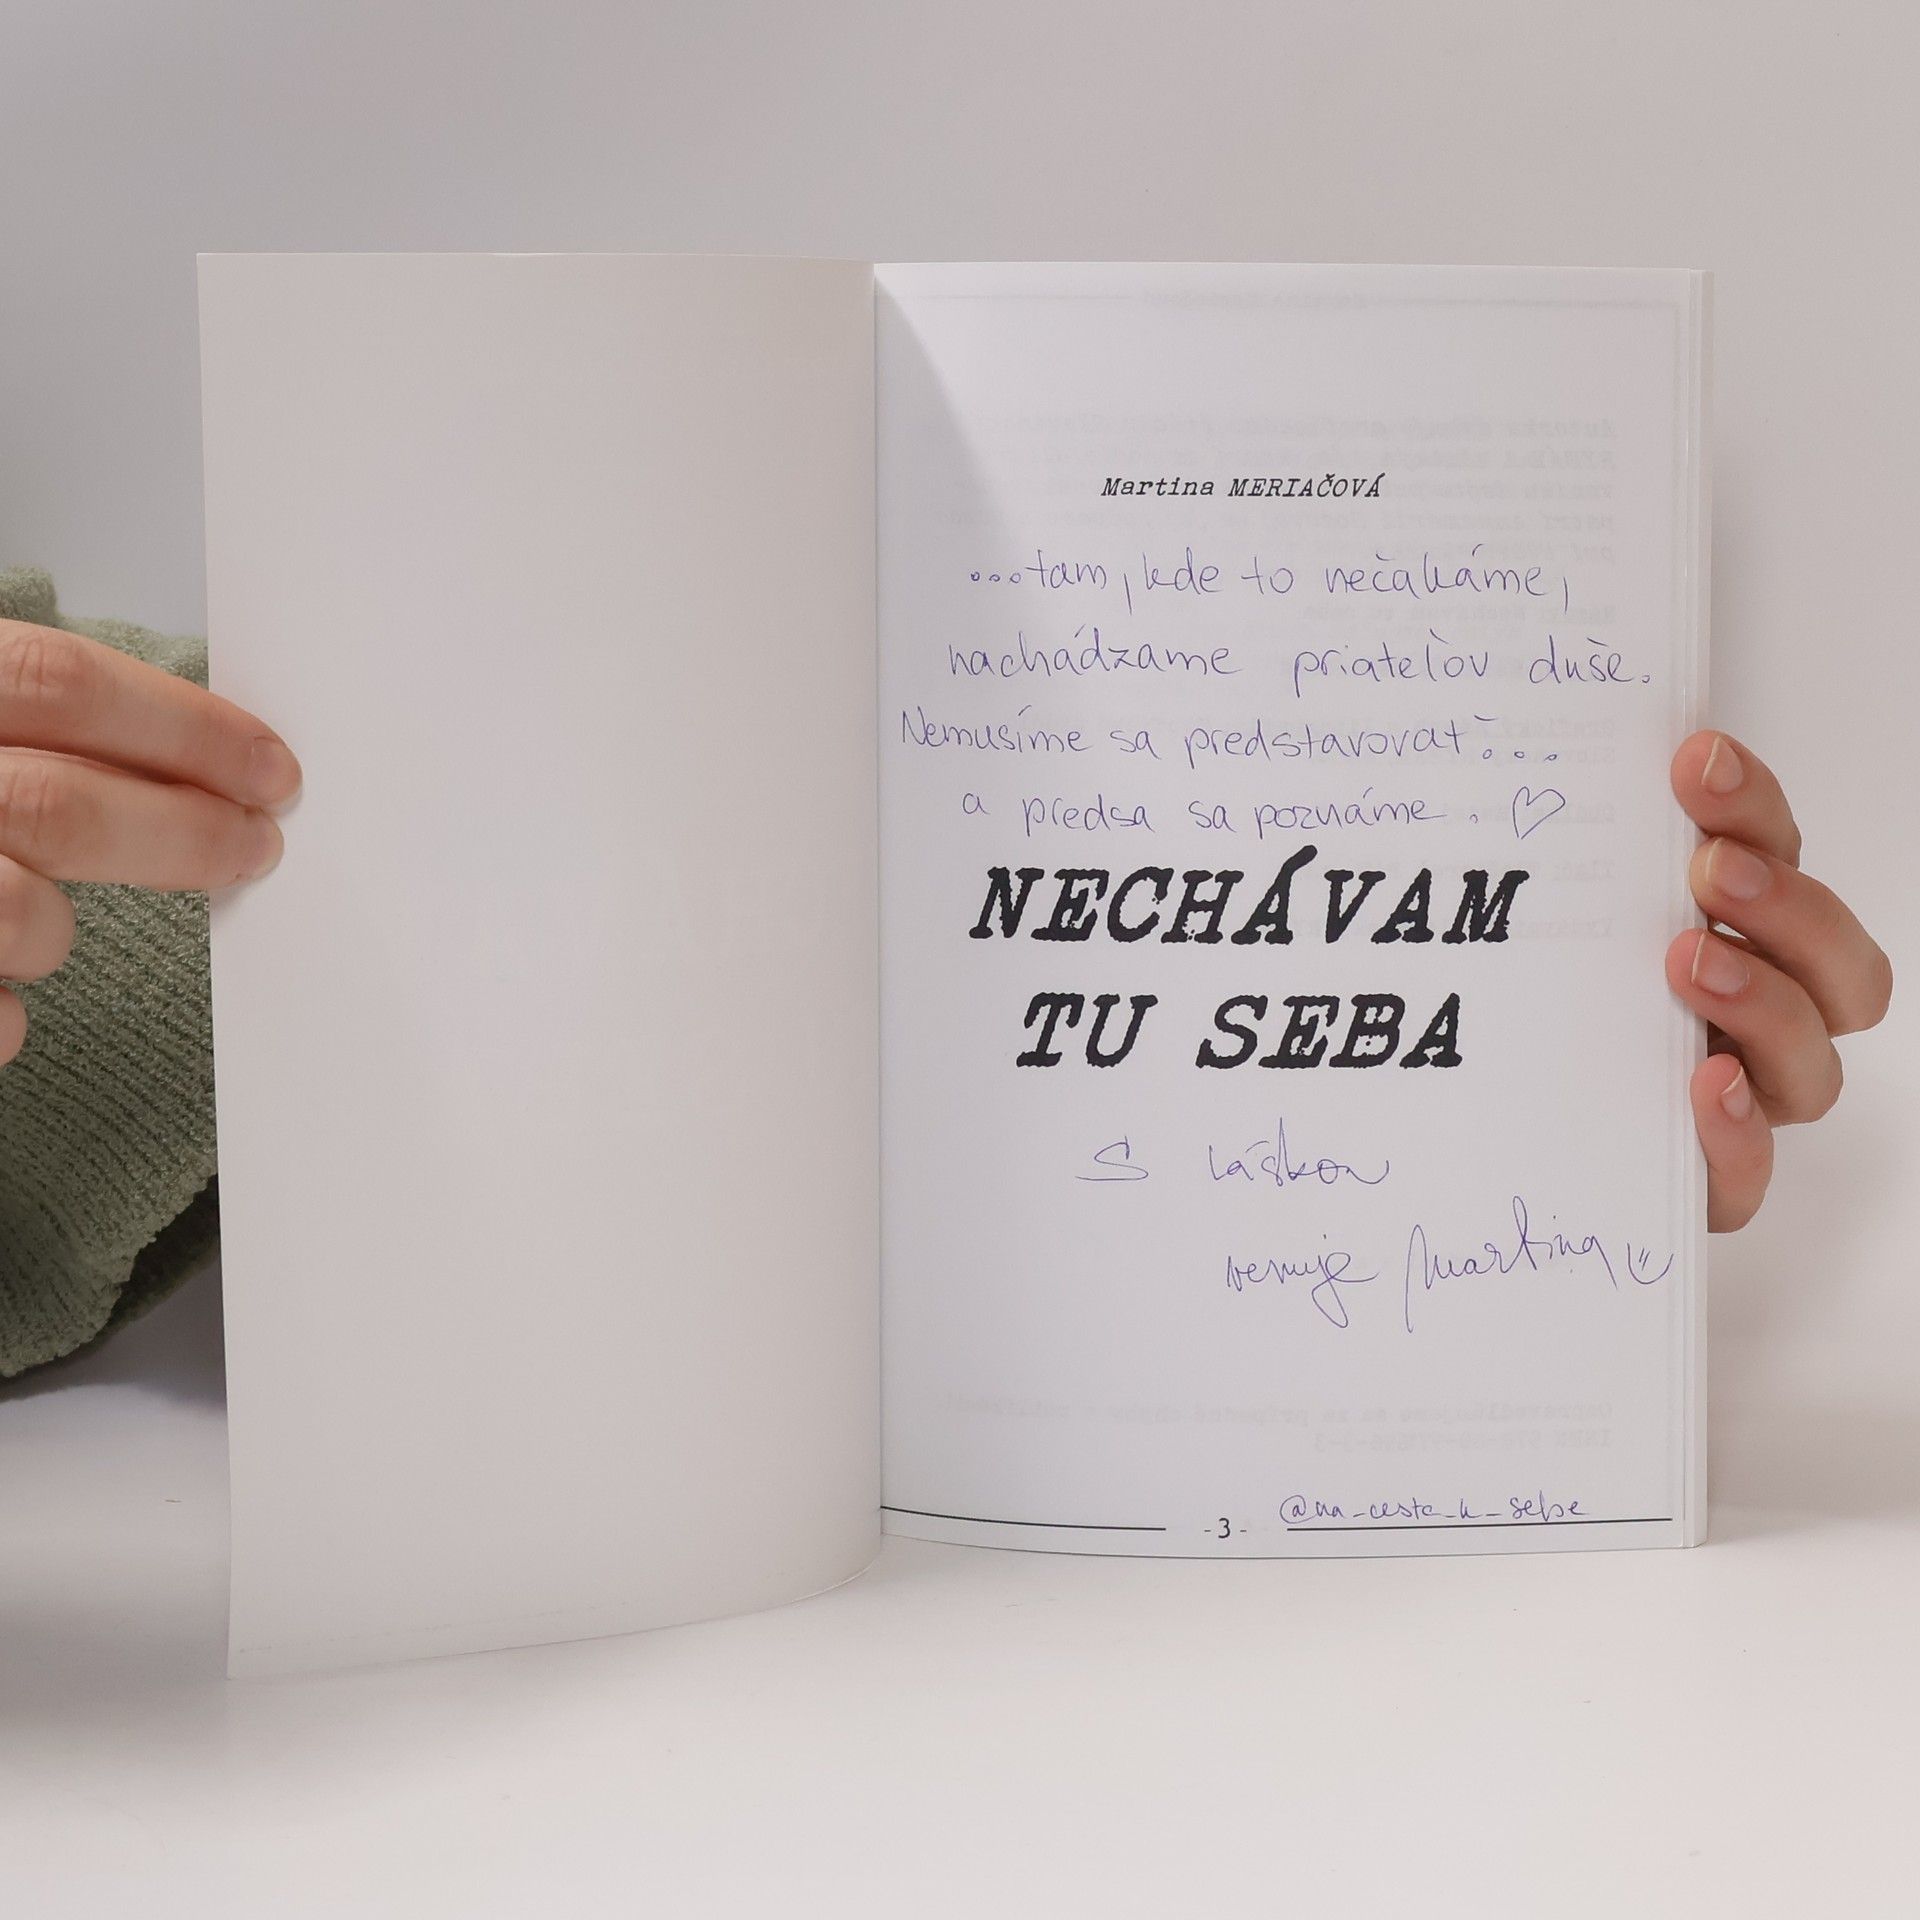 Martina MERIAČOVÁ
...tam, kde to nečakáme,
nachádzame priateľov duše.
Nemusíme sa predstavovať...
a predsa sa poznáme. ♡
NECHÁVAM
TU SEBA
S láskou
venuje Martina
@na_ceste_k_sebe
- 3 -